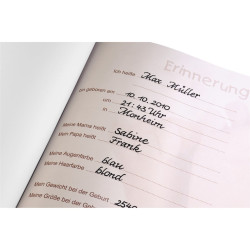 Erinnerung
Ich heiße Max Müller
Ich geboren am 10.10.2010
um 21:43 Uhr
in Monheim
Meine Mama heißt Sabine
Mein Papa heißt Frank
Meine Augenfarbe blau
Meine Haarfarbe blond
Mein Gewicht bei der Geburt 2540
Meine Größe bei der Geb